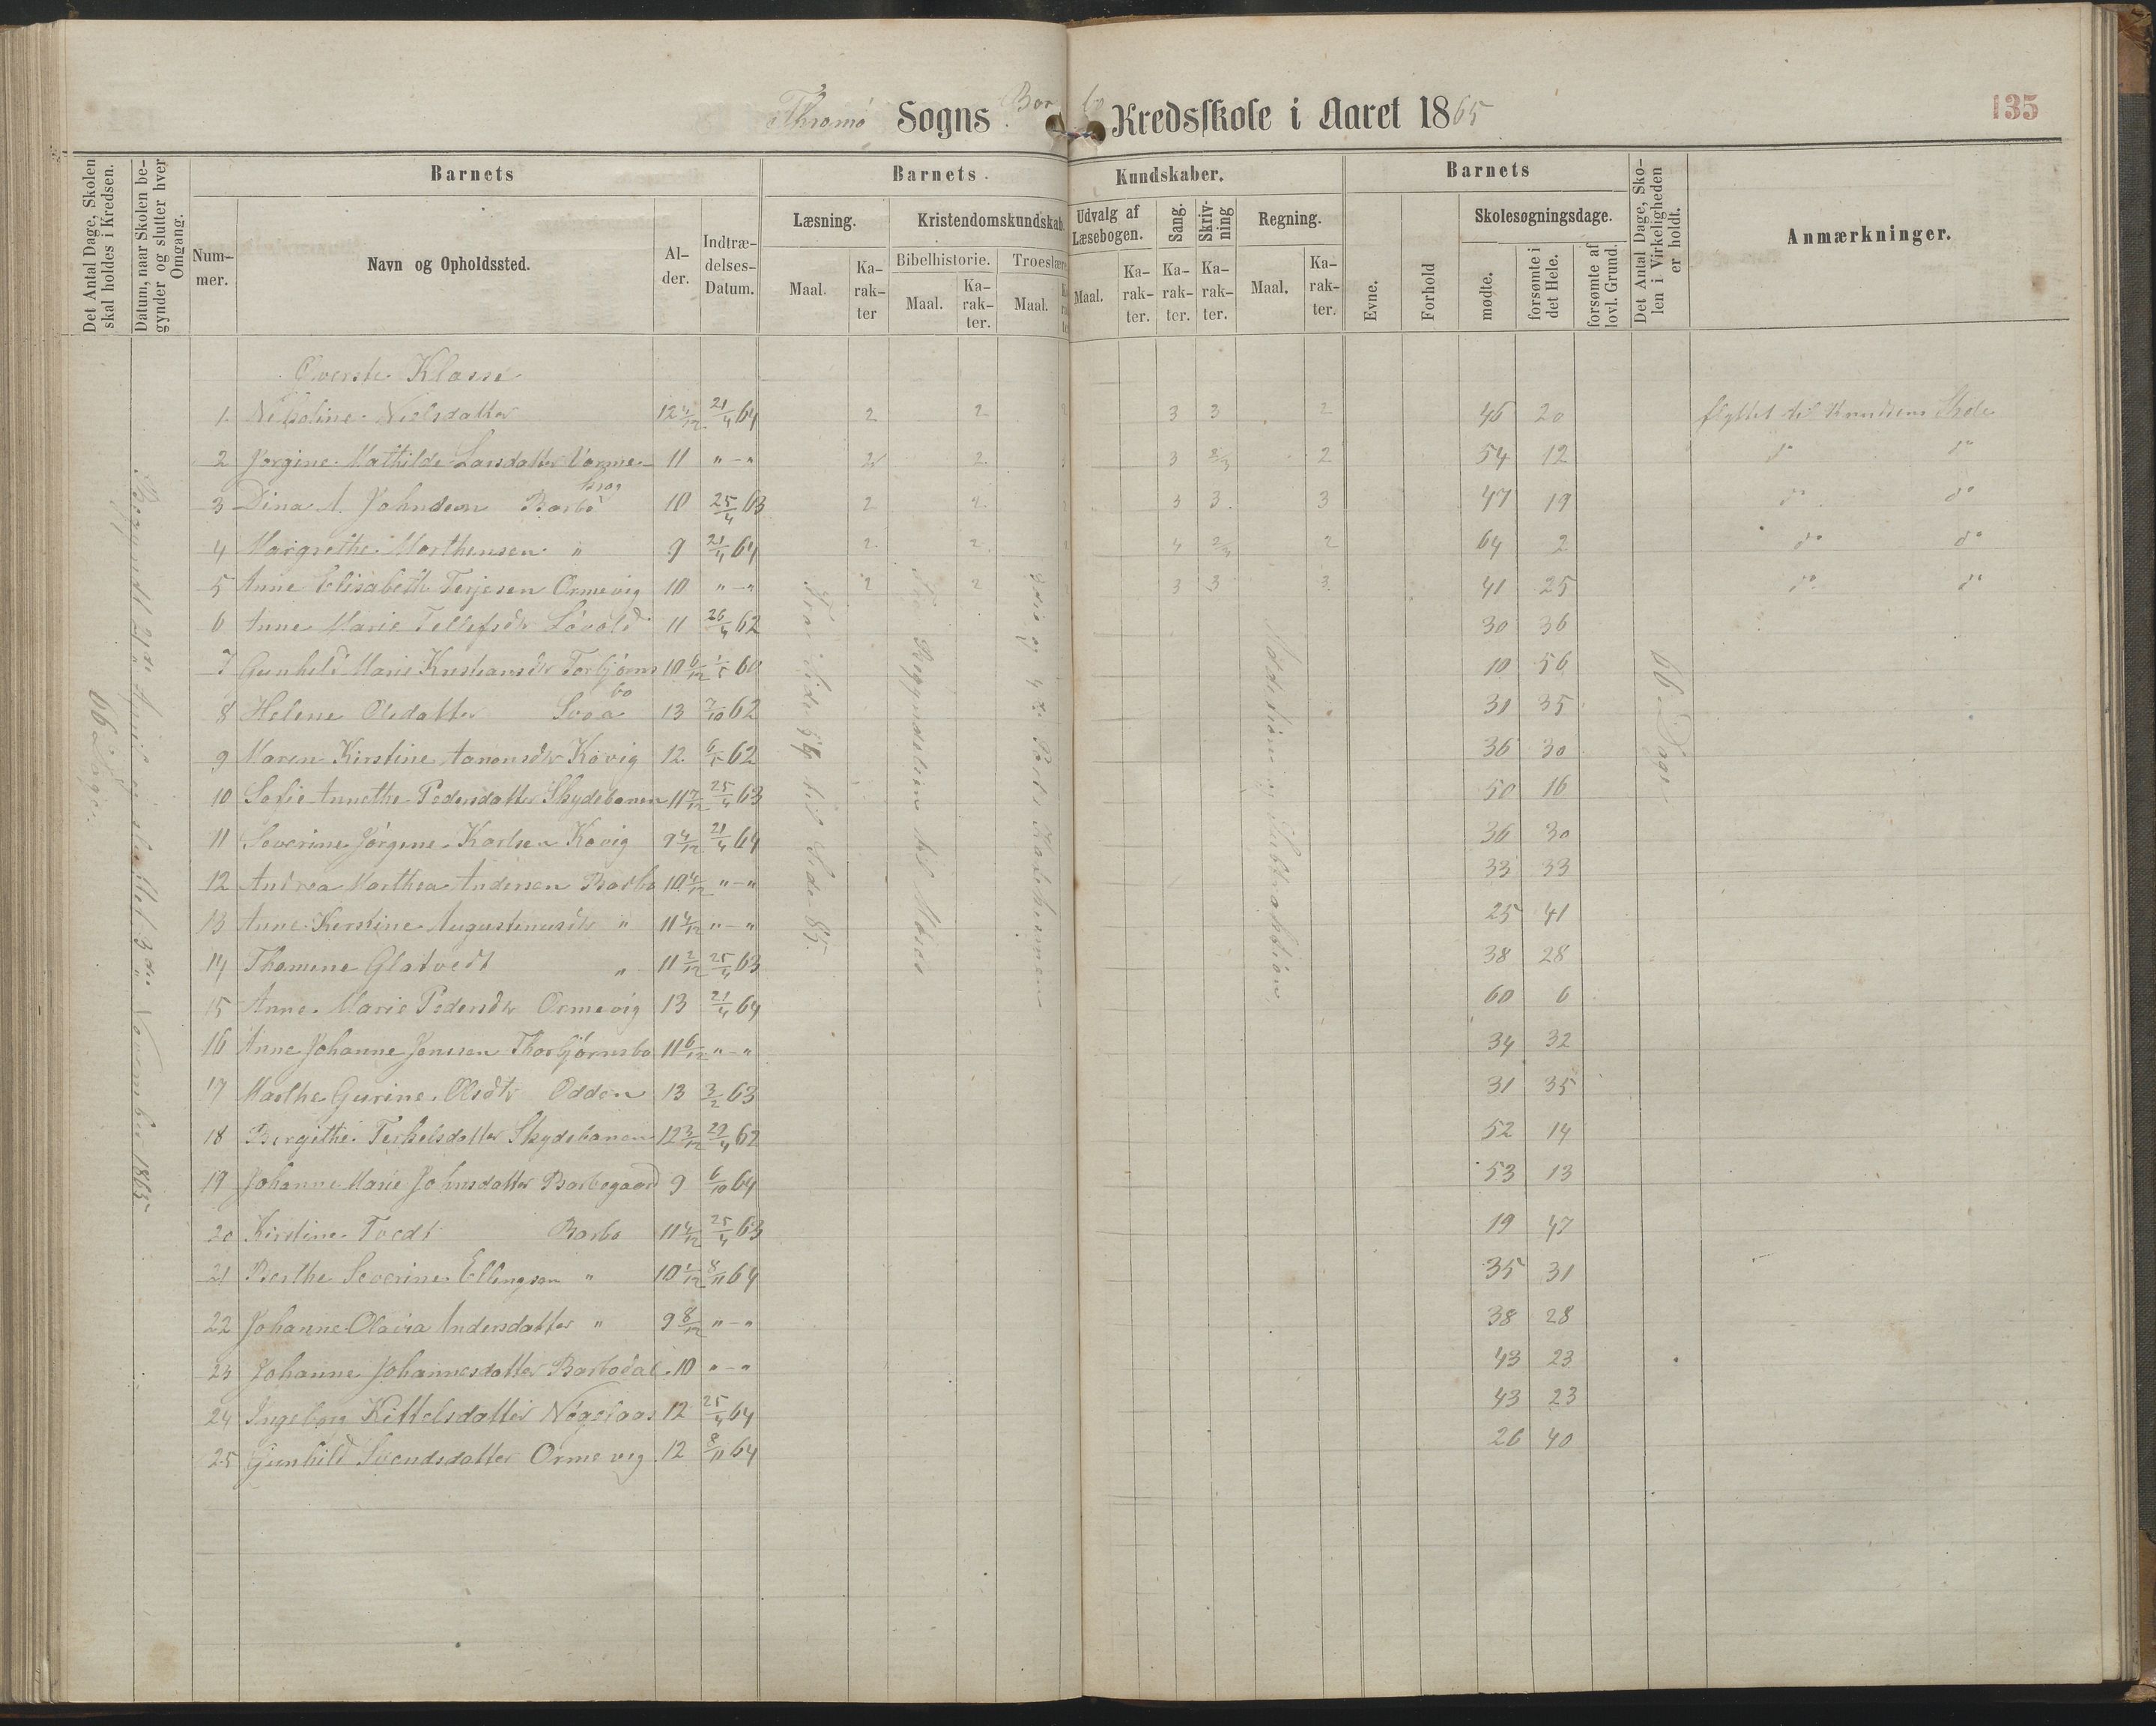 Thromø Sogns Barbo Kredsskole i Aaret 1865
135
Det Antal Dage, Skolen skal holdes i Kredsen.
Datum, naar Skolen begynder og slutter hver Omgang.
Barnets
Nummer.
Navn og Opholdssted.
Alder.
Indtrædelses-Datum.
Barnets Kundskaber.
Læsning.
Maal.
Karakter
Kristendomskundskab.
Bibelhistorie.
Maal.
Karakter.
Troeslære
Maal.
Udvalg af Læsebogen.
Maal.
Karakter.
Sang.
Karakter.
Skrivning
Karakter.
Regning.
Maal.
Karakter.
Barnets
Evne.
Forhold
Skolesøgningsdage.
mødte.
forsømte i det Hele.
forsømte af lovl. Grund.
Det Antal Dage, Skolen i Virkeligheden er holdt.
Anmærkninger.
66 Dage.
Begyndt 21de April og sluttet 3die November 1865
Fra Side til Side 85.
Fra Begyndelsen til Moses
3die og 4de Part i Katekismen
Addition og Subtraktion
66 Dage
Øverste Klasse
1. Nikoline Nielsdatter 12 4/12 21/4 64 2 2 3 3 2 46 20 flyttet til Knudsens Skole
2 Jørgine Mathilde Larsdatter 11 " - " 2 2 3 2/3 2 54 12 do do
3 Dina A. Johndson Barbo 10 25/4 63 2 2 3 3 3 47 19 do do
4 Margrethe Marthensen " 9 21/4 64 2 2 4 2/3 2 64 2 do do
5 Anne Elisabeth Terjesen Ormevig 10 " - " 2 2 3 3 3 41 25 do do
6 Anne Marie Tellefsdtr Løvold 11 26/4 62 30 36
7 Gunhild Marie Kristiansdtr Torbjørnsbo 10 6/12 1/5 60 10 56
8 Helene Olsdatter Svoa 13 7/10 62 31 35
9 Maren Kirstine Aanonsdtr Kovig 12 6/5 62 36 30
10 Sofie Annethe Pedersdatter Skydebanen 11 7/12 25/4 63 50 16
11 Severine Jørgine Karlsen Kovig 9 4/12 21/4 64 36 30
12 Andrea Marthea Andersen Barbo 10 4/12 " - " 33 33
13 Anne Kerstine Augustinusdtr " 11 4/12 " - " 25 41
14 Thomine Glatvedt " 11 2/12 25/4 63 38 28
15 Anne Marie Pedersdtr Ormevig 13 21/4 64 60 6
16 Anne Johanne Jenssen Thorbjørnsbo 11 6/12 " - " 34 32
17 Marthe Gurine Olsdtr Odden 13 3/2 63 31 35
18 Bergithe Terkelsdatter Skydebanen 12 3/12 29/4 62 52 14
19 Johanne Marie Johnsdatter Barbogaard 9 6/10 64 53 13
20 Kirstine Tvedt Barbo 11 4/12 25/4 63 19 47
21 Berthe Severine Ellingsen " 10 1/12 8/11 64 35 31
22 Johanne Olavia Andersdatter " 9 8/12 " - " 38 28
23 Johanne Johannesdatter Barbodal 10 " - " 43 23
24 Ingeborg Kittelsdatter Nøgelaas 12 25/4 64 43 23
25 Gunhild Svendsdatter Ormevig 12 8/11 64 26 40